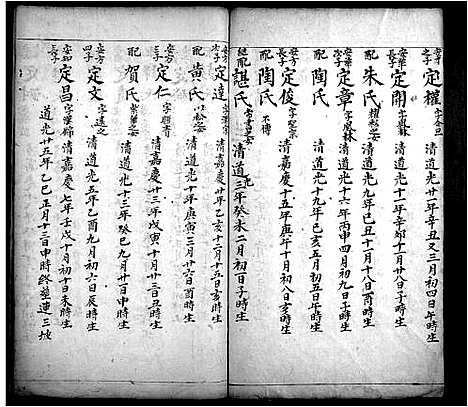 安才之子 定權 字會三 清道光廿一年辛丑又三月初四日午時生
安華長子 定開 字 清道光十一年辛卯十月廿八日子時生
配 朱氏 清道光九年己丑十月十八日酉時生
安華次子 定章 字 林 清道光十六年丙申四月初三日子時生
配 陶氏 清道光十九年己亥五月初五日午時生
安方長子 定俊 字 清嘉慶十五年庚午十月初八日亥時生
配 陶氏 不傳
繼配 諶氏 清道光三年癸未二月初一日子時生
安方次子 定達 清嘉慶廿年乙亥十二月十五日亥時生
配 黃氏 清道光十年庚寅三月廿六日酉時生
安方三子 定仁 字順青 清嘉慶廿三年戊寅十月十三日丑時生
配 賀氏 清道光十三年癸巳九月廿三日申時生
安方四子 定文 字達之 清道光五年乙酉九月初六日辰時生
安四長子 定昌 字漢卿 清嘉慶七年壬戌十月初十日未時生
道光廿五年乙巳正月十三日申時終葬連三坡